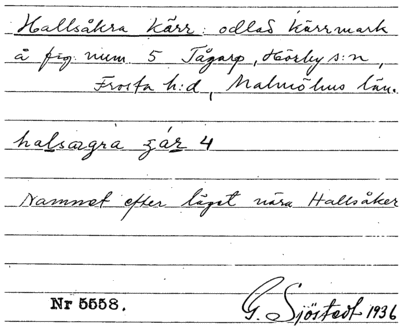 Hallsåkra Kärr: odlad kärrmark
å fig. num 5 Tågarp, Hörby s:n,
Frosta h:d, Malmöhus län.
halsagra çár 4
Namnet efter läget nära Hallsåker
Nr 5558.
G. Sjöstedt 1936